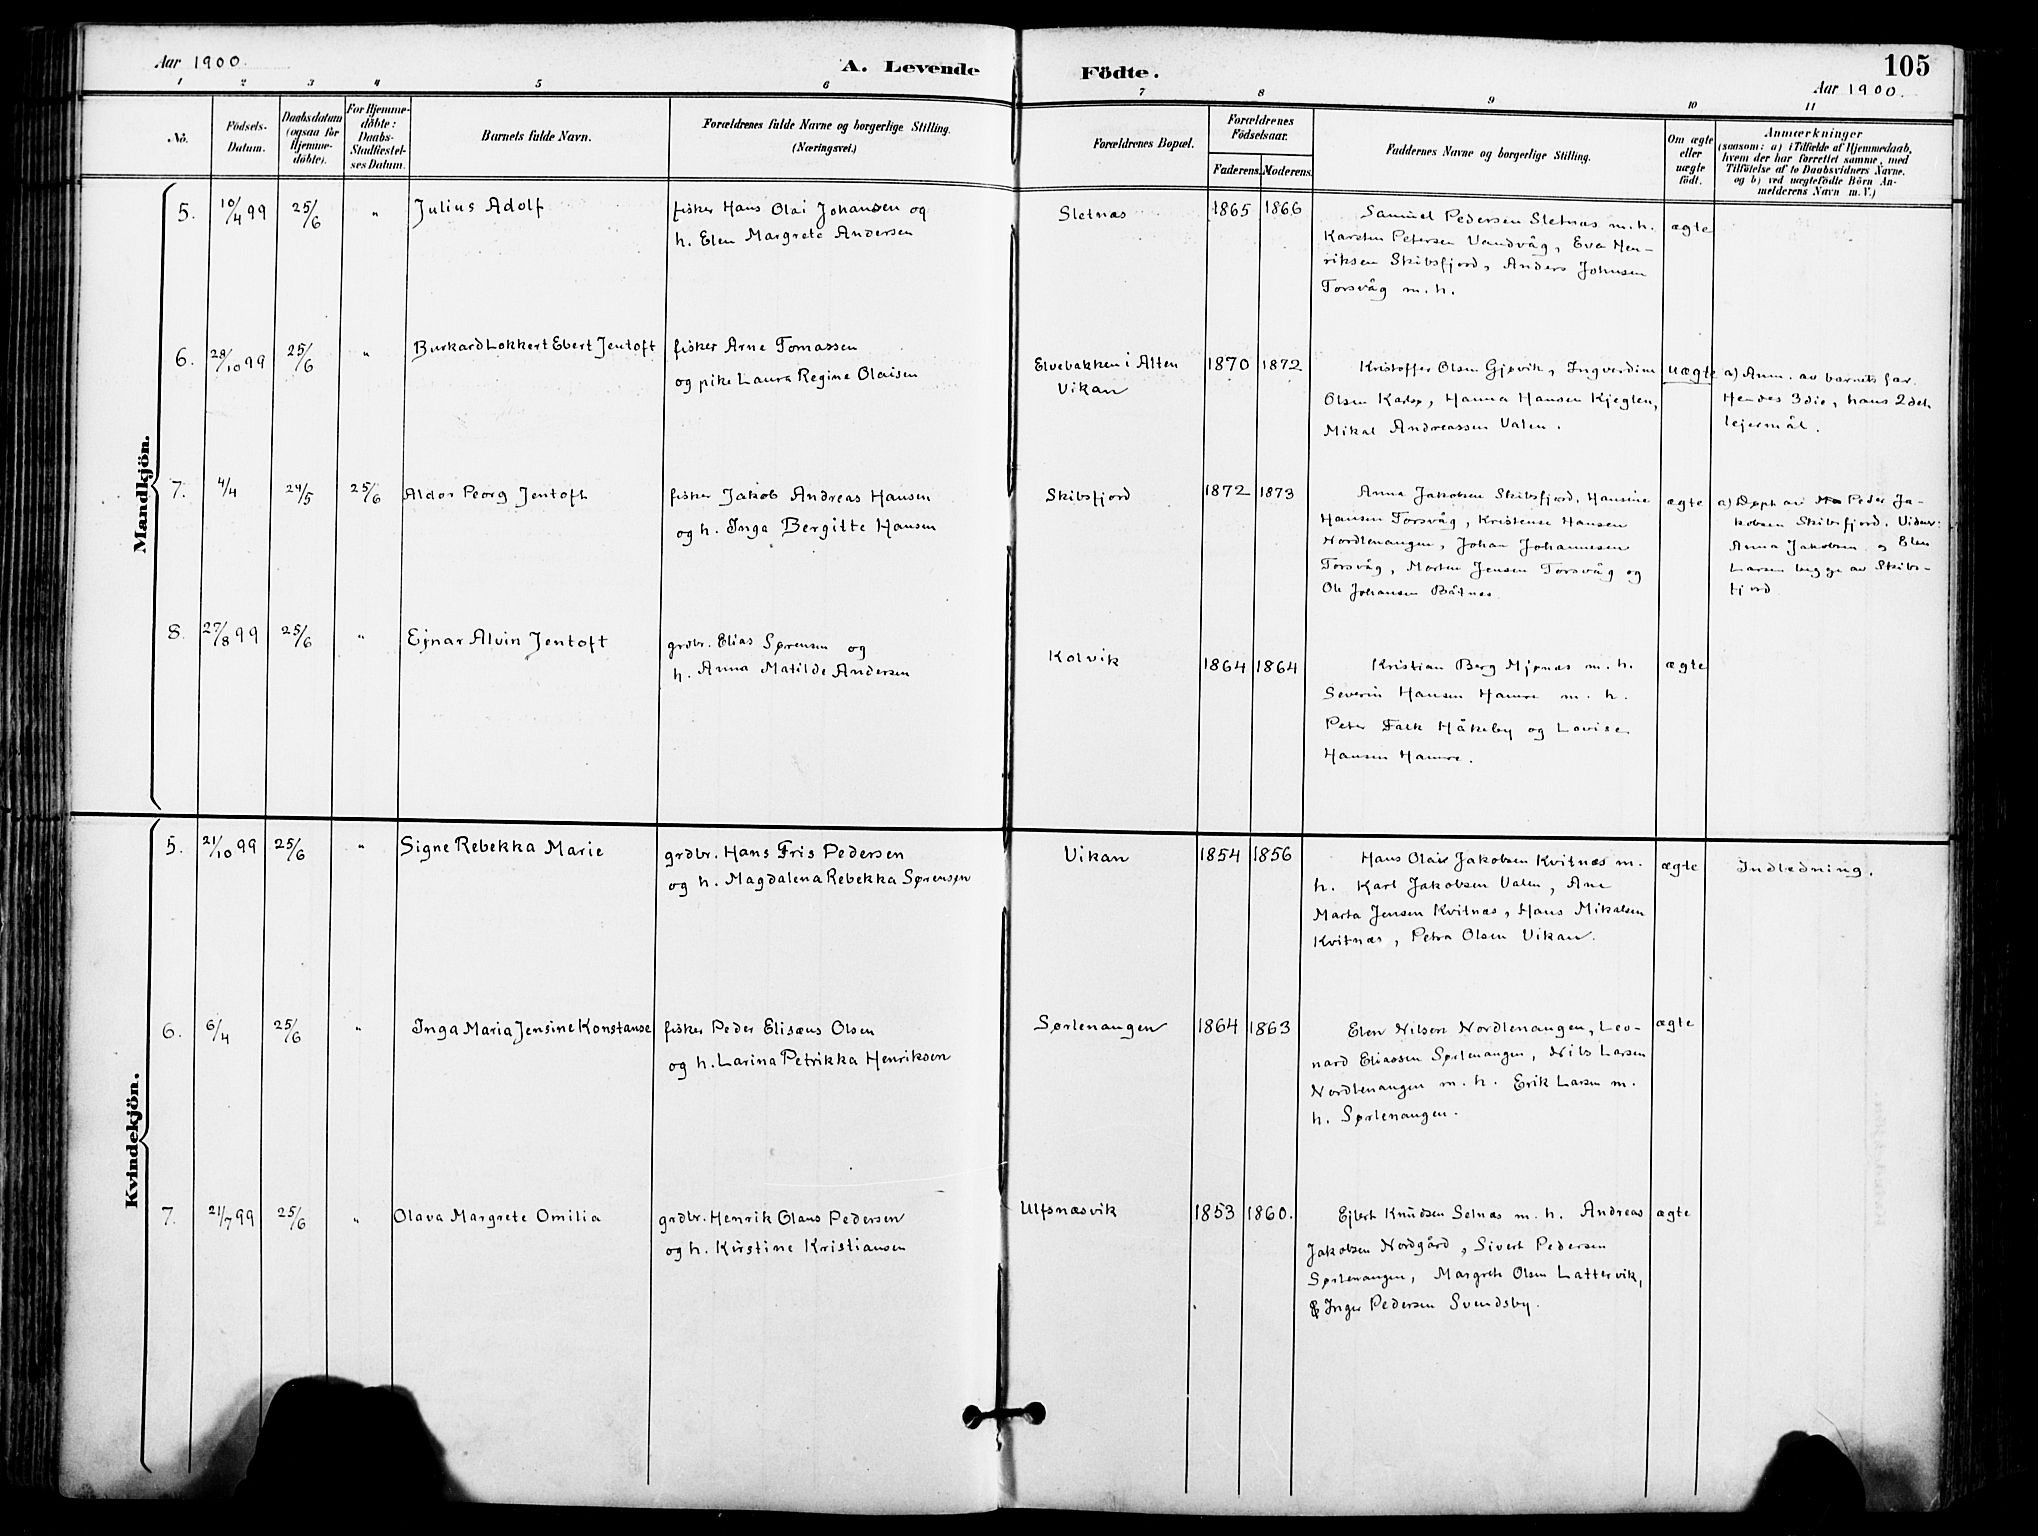 Aar 1900.
A. Levende Födte.
105
Aar 1900.
1 2 3 4 5 6 7 8 9 10 11
No.
Födsels-
Datum.
Daabsdatum
(ogsaa for
Hjemme-
döbte).
For Hjemme-
döbte:
Daabs-
Stadfæstel-
ses Datum.
Barnets fulde Navn.
Forældrenes fulde Navne og borgerlige Stilling.
(Næringsvei.)
Forældrenes Bopæl.
Forældrenes
Födselsaar.
Faderens. Moderens.
Faddernes Navne og borgerlige Stilling.
Om ægte
eller
uægte
födt.
Anmærkninger
(saasom: a) i Tilfælde af Hjemmedaab,
hvem der har forrettet samme, med
Tilföielse af to Daabsvidners Navne.
og b) ved uægtefödte Börn An-
melderens Navn m.V.)
Mandkjön.
5. 10/4 99 25/6 " Julius Adolf
fisker Hans Olai Johansen og
h. Elen Margrete Andersen
Sletnæs 1865 1866
Samuel Pedersen Sletnæs m. h.
Karsten Petersen Vandvåg, Eva Hen-
riksen Skibsfjord, Anders Johnsen
Torsvåg m. h.
ægte
6. 28/10 99 25/6 " Burkard Lokkert Ebert Jentoft
fisker Arne Tomassen
og pike Laura Regine Olaisen
Elvebakken i Alten
Vikan
1870 1872
Kristoffer Olsen Gjøvik, Ingverdine
Olsen Karlsø, Hanna Hansen Kjeglen,
Mikal Andreassen Valen.
uægte
a) Anm. av barnets far.
Hendes 3die, hans 2det
lejermål.
7. 4/4 24/5 25/6 Aldor Peorg Jentoft
fisker Jakob Andreas Hansen
og h. Inga Bergitte Hansen
Skibsfjord 1872 1873
Anna Jakobsen Skibsfjord, Hansine
Hansen Torsvåg, Kristense Hansen
Nordlenangen, Johan Johannesen
Torsvåg, Morten Jensen Torsvåg og
Ole Johansen Båtnes.
ægte
a) Døpt av Peder Ja-
kobsen Skibsfjord. Vidner:
Anna Jakobsen og Elen
Larsen begge av Skibs-
fjord
8. 27/8 99 25/6 " Ejnar Alvin Jentoft
grdbr. Elias Sørensen og
h. Anna Matilde Andersen
Kolvik 1864 1864
Kristian Berg Mjønæs m. h.
Severin Hansen Hamre m. h.
Peter Falk Håkeby og Lovise
Hansen Hamre.
ægte
Kvindekjön.
5. 21/10 99 25/6 " Signe Rebekka Marie
grdbr. Hans Fris Pedersen
og h. Magdalena Rebekka Sørensen
Vikan 1854 1856
Hans Olai Jakobsen Kvitnæs m.
h. Karl Jakobsen Valen, Ane
Marta Jensen Kvitnæs, Hans Mikalsen
Kvitnæs, Petra Olsen Vikan.
ægte
Indledning.
6. 6/4 25/6 " Inga Maria Jensine Konstanse
fisker Peder Elisæus Olsen
og h. Larina Petrikka Henriksen
Sørlenangen 1864 1863
Elen Nilsen Nordlenangen, Leo-
nard Eliassen Sørlenangen, Nils Larsen
Nordlenangen m. h. Erik Larsen m.
h. Sørlenangen.
ægte
7. 21/7 99 25/6 " Olava Margrete Omilia
grdbr. Henrik Olaus Pedersen
og h. Kirstine Kristiansen
Ulfsnæsvik 1853 1860.
Ejlert Knudsen Selnæs m. h. Andreas
Jakobsen Nordgård, Sivert Pedersen
Sørlenangen, Margrete Olsen Lattervik,
Inger Pedersen Svendsby.
ægte